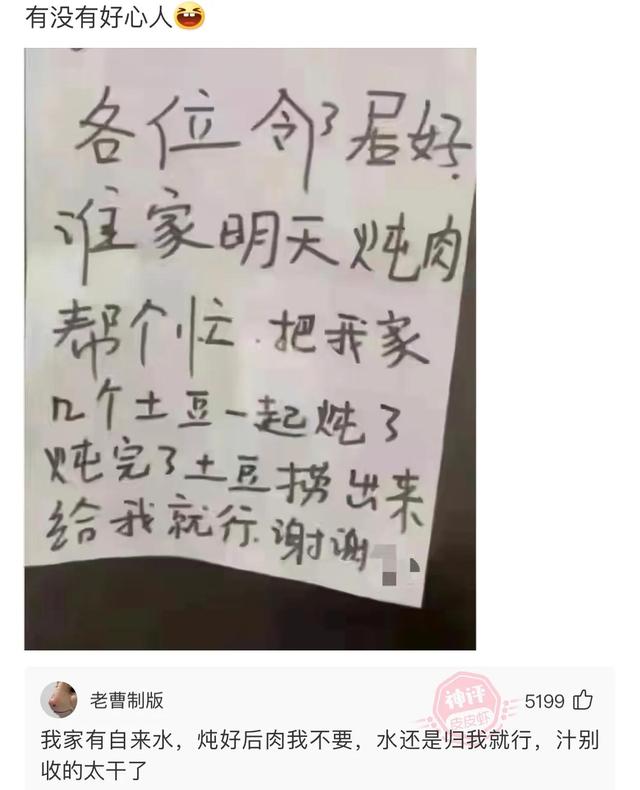 有没有好心人😆
各位邻居好.
谁家明天炖肉
帮个忙.把我家
几个土豆一起炖了
炖完了土豆捞出来
给我就行.谢谢
老曹制版
神评
皮皮虾
5199
我家有自来水，炖好后肉我不要，水还是归我就行，汁别
收的太干了